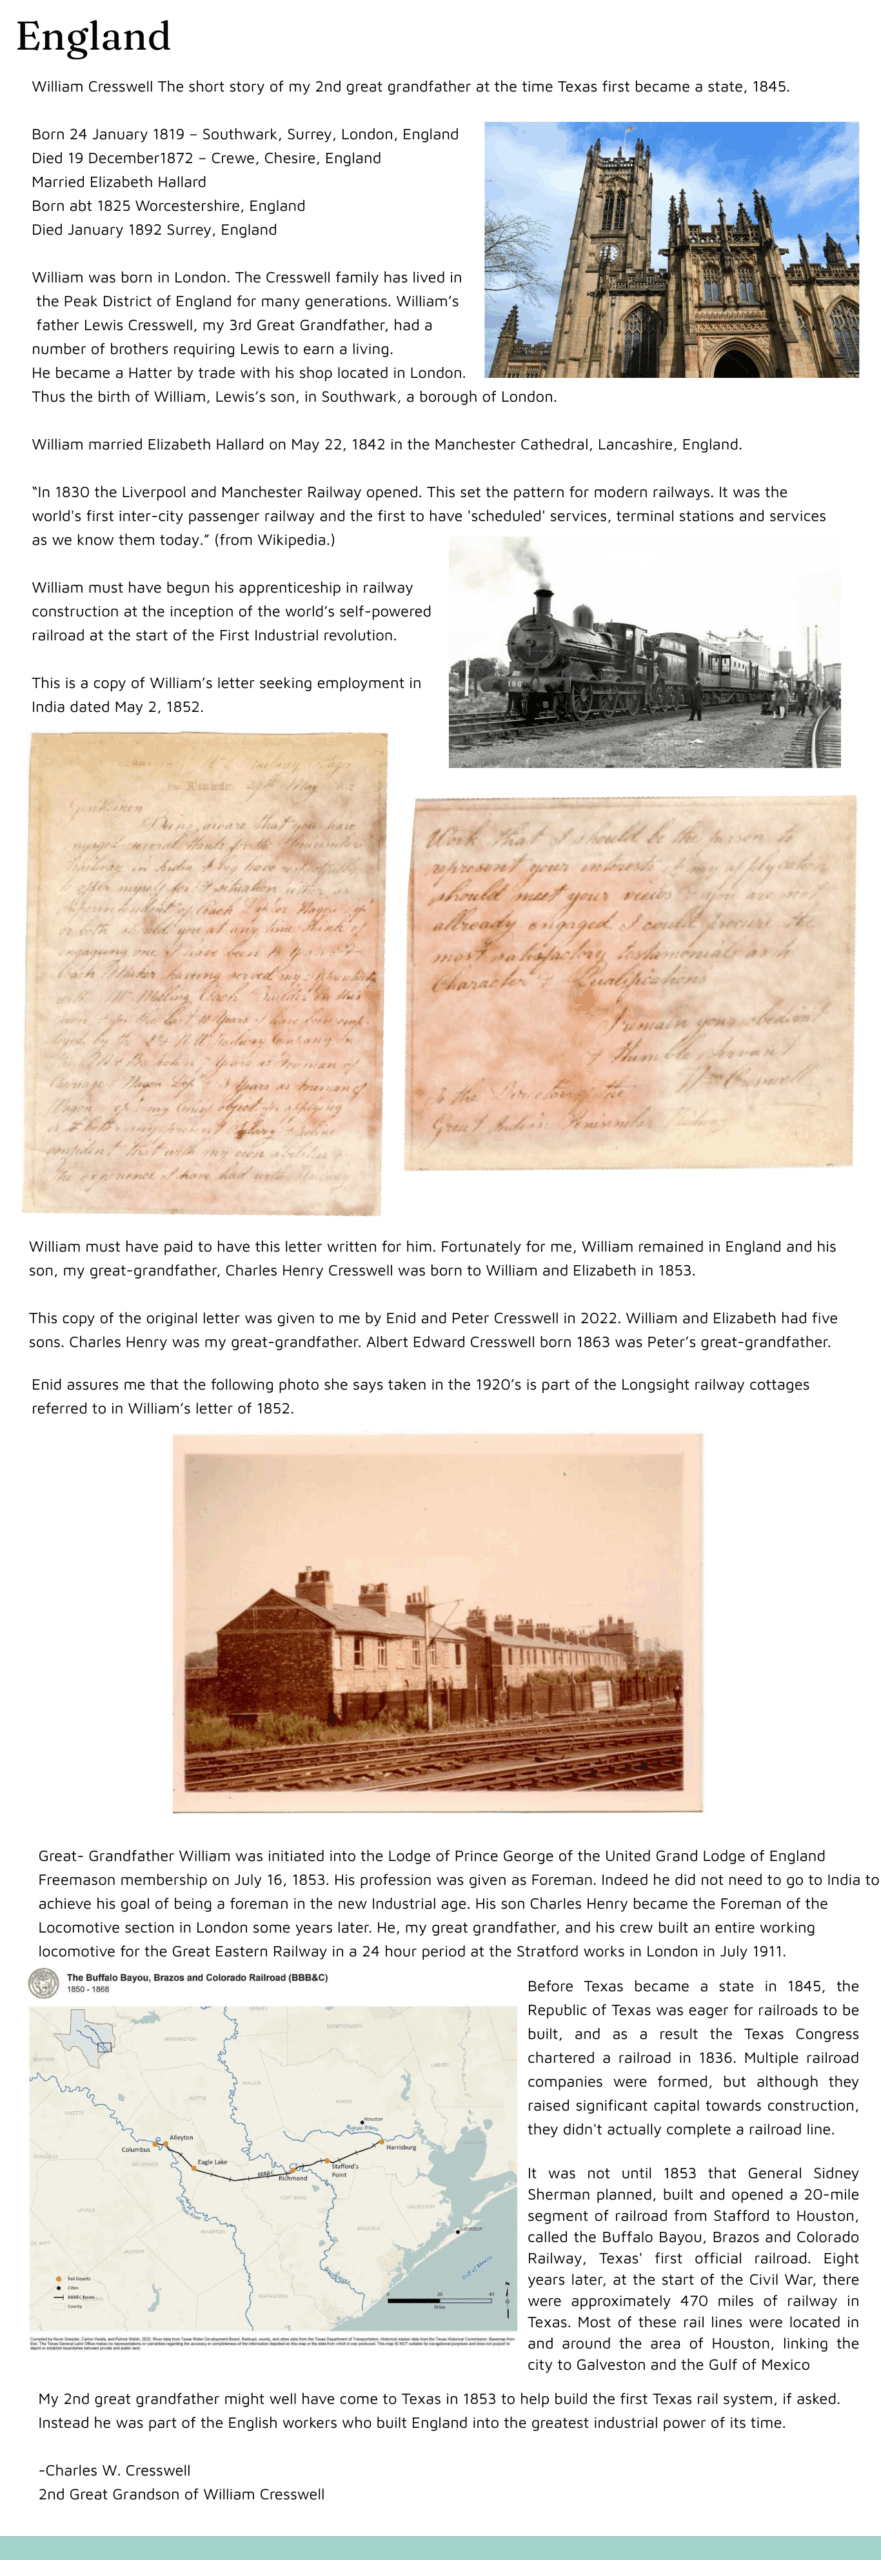 England
William Cresswell The short story of my 2nd great grandfather at the time Texas first became a state, 1845.
Born 24 January 1819 – Southwark, Surrey, London, England
Died 19 December1872 – Crewe, Chesire, England
Married Elizabeth Hallard
Born abt 1825 Worcestershire, England
Died January 1892 Surrey, England
William was born in London. The Cresswell family has lived in
the Peak District of England for many generations. William’s
father Lewis Cresswell, my 3rd Great Grandfather, had a
number of brothers requiring Lewis to earn a living.
He became a Hatter by trade with his shop located in London.
Thus the birth of William, Lewis’s son, in Southwark, a borough of London.
William married Elizabeth Hallard on May 22, 1842 in the Manchester Cathedral, Lancashire, England.
“In 1830 the Liverpool and Manchester Railway opened. This set the pattern for modern railways. It was the
world's first inter-city passenger railway and the first to have 'scheduled' services, terminal stations and services
as we know them today.” (from Wikipedia.)
William must have begun his apprenticeship in railway
construction at the inception of the world’s self-powered
railroad at the start of the First Industrial revolution.
This is a copy of William’s letter seeking employment in
India dated May 2, 1852.
Gentlemen
Being aware that you have
engaged several Hands for the Peninsular
Railway in India I beg leave respectfully
to offer myself for a situation either as
Superintendent of Coach Dep or Wagon Dep
or both should you at any time think of
engaging one I have been 18 years a
Coach Maker having served my
with Mr Coach Builder in this
Town for the last 10 years I have been emp
loyed by the L & N W Railway Company in
years as Foreman of
Carriage & Wagon Dep 3 Years as Foreman of
Wagon my Chief object in applying
is to better my present Salary
confident that with my own abilities &
the experience I have had with Railway
Work that I should be the person to
represent your interests if my application
should meet your views if you are not
allready engaged I could procure the
most satisfactory testamonials as to
Character & Qualifications
I remain your obedient
& Humble Servant
Wm Cresswell
To the Directors of the
Great Indian Peninsular Railway
William must have paid to have this letter written for him. Fortunately for me, William remained in England and his
son, my great-grandfather, Charles Henry Cresswell was born to William and Elizabeth in 1853.
This copy of the original letter was given to me by Enid and Peter Cresswell in 2022. William and Elizabeth had five
sons. Charles Henry was my great-grandfather. Albert Edward Cresswell born 1863 was Peter’s great-grandfather.
Enid assures me that the following photo she says taken in the 1920’s is part of the Longsight railway cottages
referred to in William’s letter of 1852.
Great- Grandfather William was initiated into the Lodge of Prince George of the United Grand Lodge of England
Freemason membership on July 16, 1853. His profession was given as Foreman. Indeed he did not need to go to India to
achieve his goal of being a foreman in the new Industrial age. His son Charles Henry became the Foreman of the
Locomotive section in London some years later. He, my great grandfather, and his crew built an entire working
locomotive for the Great Eastern Railway in a 24 hour period at the Stratford works in London in July 1911.
The Buffalo Bayou, Brazos and Colorado Railroad (BBB&C)
1850 - 1868
GRIMES
MONTGOMERY
WASHINGTON
LIBERTY
WALLER
AUSTIN
HARRIS
FAYETTE
Houston
Buffalo Bayou
Alleyton
Columbus
Harrisburg
Eagle Lake
Stafford's
Point
BBB&C
Richmond
GONZALES
COLORADO
FORT BEND
LAVACA
GALVESTON
WHARTON
BRAZORIA
Galveston
DE WITT
JACKSON
Gulf of Mexico
MATAGORDA
Rail Depots
Cities
BBB&C Route
County
0 20 40
Miles
N
Before Texas became a state in 1845, the
Republic of Texas was eager for railroads to be
built, and as a result the Texas Congress
chartered a railroad in 1836. Multiple railroad
companies were formed, but although they
raised significant capital towards construction,
they didn't actually complete a railroad line.
It was not until 1853 that General Sidney
Sherman planned, built and opened a 20-mile
segment of railroad from Stafford to Houston,
called the Buffalo Bayou, Brazos and Colorado
Railway, Texas' first official railroad. Eight
years later, at the start of the Civil War, there
were approximately 470 miles of railway in
Texas. Most of these rail lines were located in
and around the area of Houston, linking the
city to Galveston and the Gulf of Mexico
My 2nd great grandfather might well have come to Texas in 1853 to help build the first Texas rail system, if asked.
Instead he was part of the English workers who built England into the greatest industrial power of its time.
-Charles W. Cresswell
2nd Great Grandson of William Cresswell